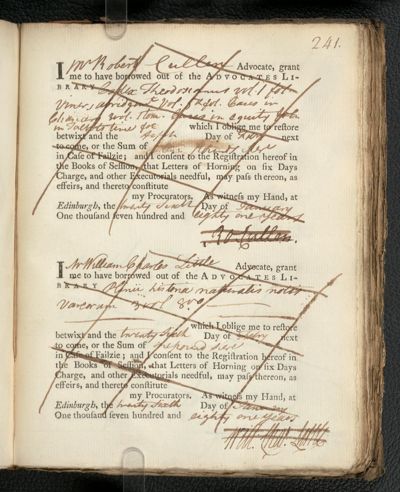 241.
I Mr Robert Cullen Advocate, grant
me to have borrowed out of the ADVOCATES LI-
BRARY Codex Theodosianus vol. 1 fol
Viners abridgment Vol. fol. Cases in
Chancery vol. fol. Cases in equity fol.
in time of which I oblige me to restore
betwixt and the Day of next
to come, or the Sum of
in Case of Failzie; and I consent to the Registration hereof in
the Books of Session, that Letters of Horning on six Days
Charge, and other Executorials needful, may pass thereon, as
effeirs, and thereto constitute
my Procurators. As witness my Hand, at
Edinburgh, the twenty sixth Day of January
One thousand seven hundred and eighty one years
Ro Cullen.
I Mr William Charles Little Advocate, grant
me to have borrowed out of the ADVOCATES LI-
BRARY Plinii historia naturalis notis
variorum 3 vol. 8vo
which I oblige me to restore
betwixt and the twenty sixth Day of next
to come, or the Sum of
in Case of Failzie; and I consent to the Registration hereof in
the Books of Session, that Letters of Horning on six Days
Charge, and other Executorials needful, may pass thereon, as
effeirs, and thereto constitute
my Procurators. As witness my Hand, at
Edinburgh, the twenty sixth Day of January
One thousand seven hundred and eighty one years
Will. Cha. Little